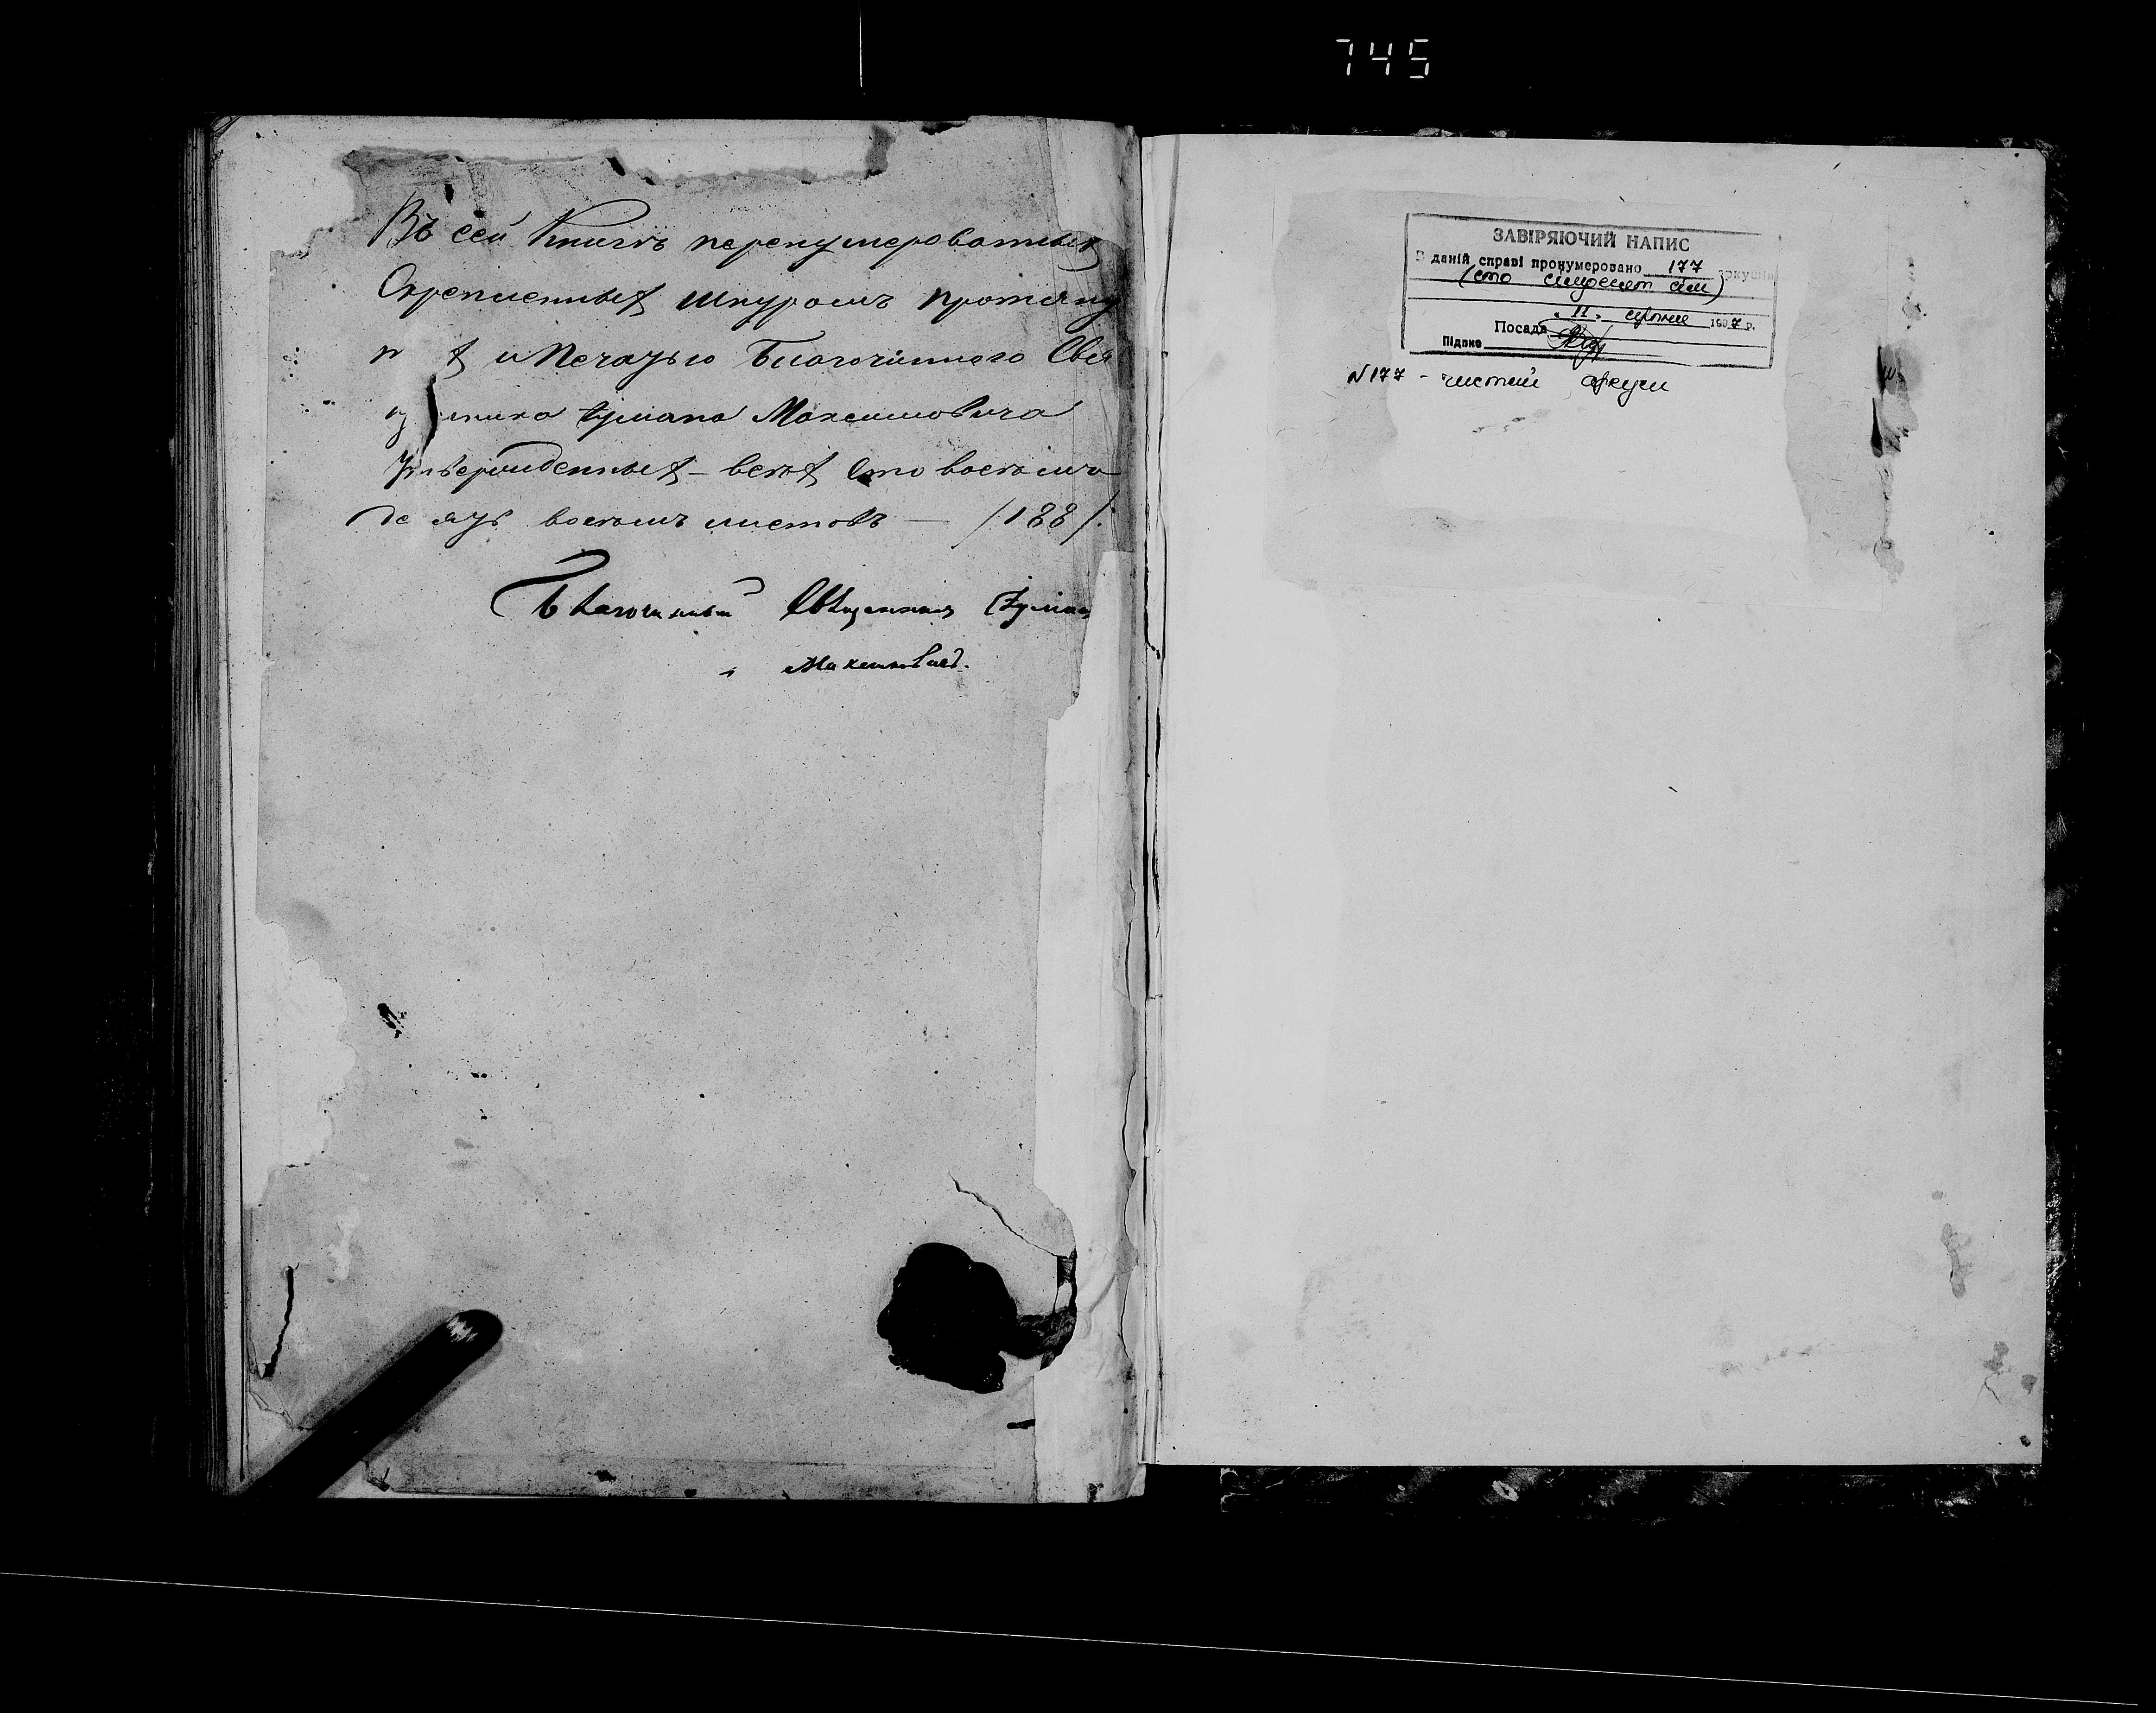 745
Въ сей Книгѣ перенумерованныхъ
Скрепленныхъ шнуромъ протяну
т хъ и Печатью Благочиннаго Свя
щ нника Максимовича
Утвержденныхъ – всѣхъ Сто восемь
де ятъ восемь листовъ — /188/.
Благочинный Священникъ
Максимовичъ.
ЗАВІРЯЮЧИЙ НАПИС
В даній справі пронумеровано 177 аркушів
(сто сімдесят сім)
" 11 " серпня 1997 р.
Посада
Підпис
N177 - чистий аркуш